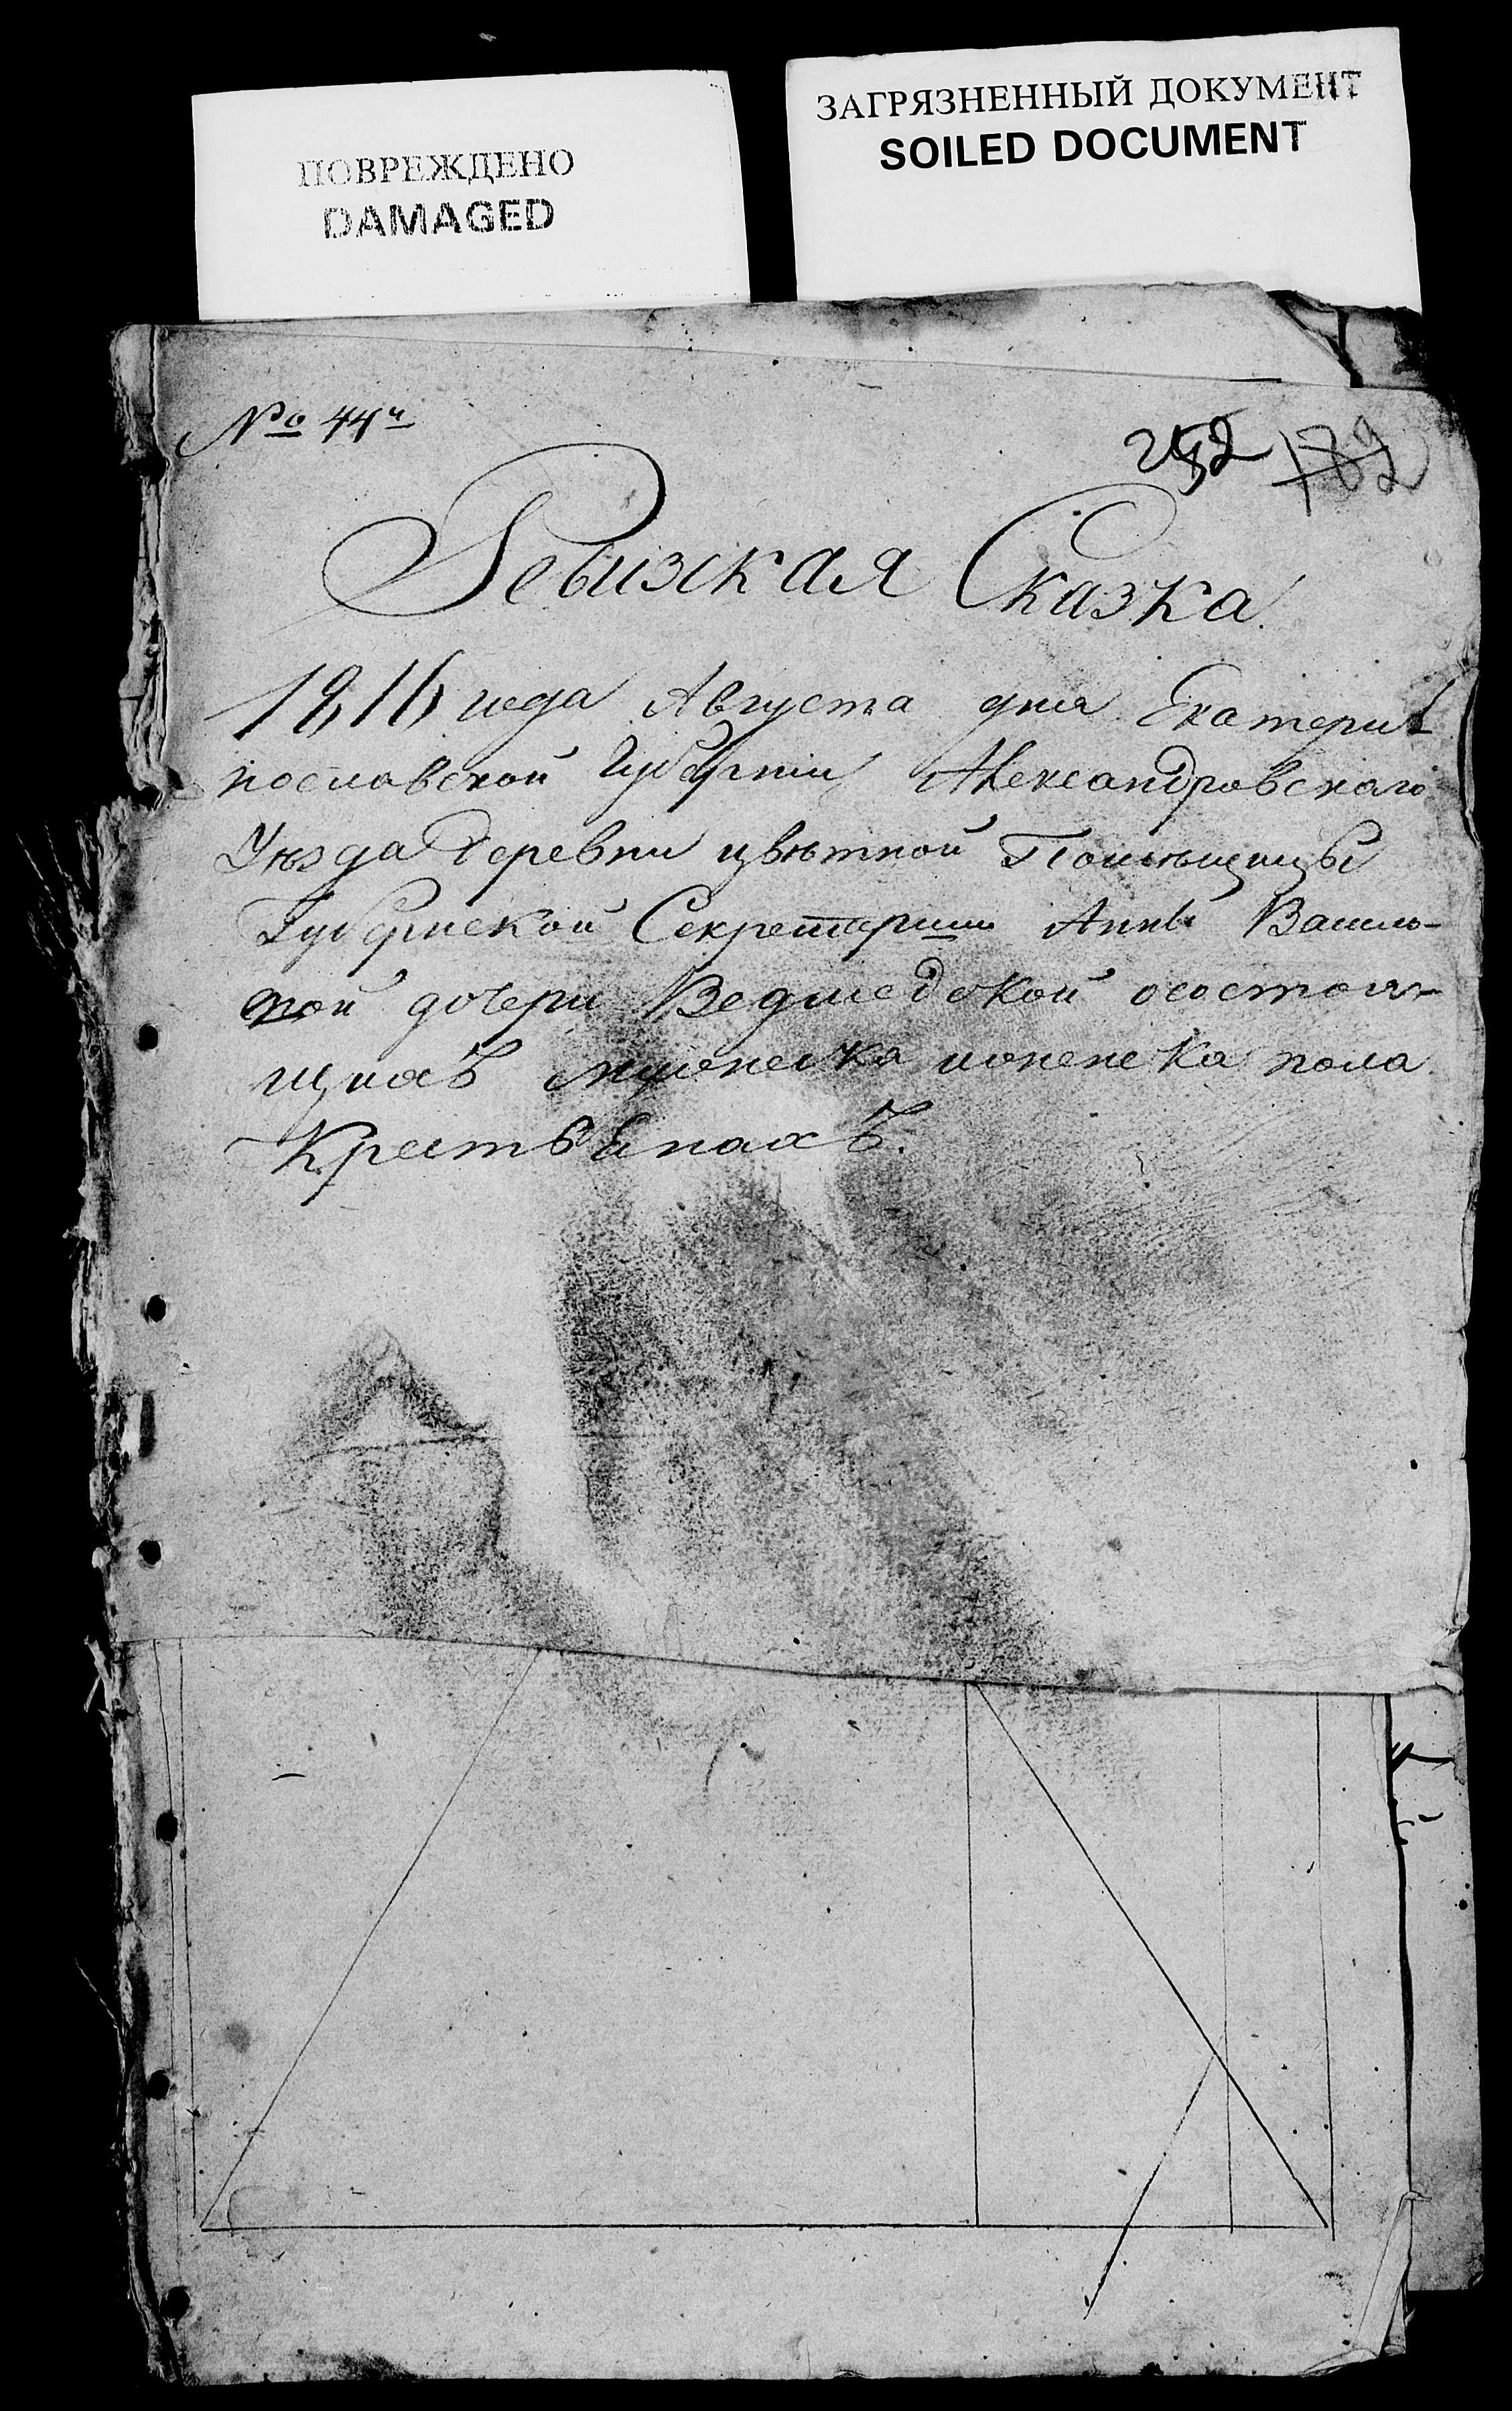 ПОВРЕЖДЕНО
DAMAGED
ЗАГРЯЗНЕННЫЙ ДОКУМЕНТ
SOILED DOCUMENT
№ 44й
252 182
Ревизская Сказка.
1816 года Августа дня Екатери
нославской Губерніи Александровскаго
Уѣзда Деревни цвѣтной Помѣщицы
Губернской Секретарши Анны Василь-
вой дочери Ведмедской осостоя-
щихъ мужеска иженска пола
Крестьянахъ.